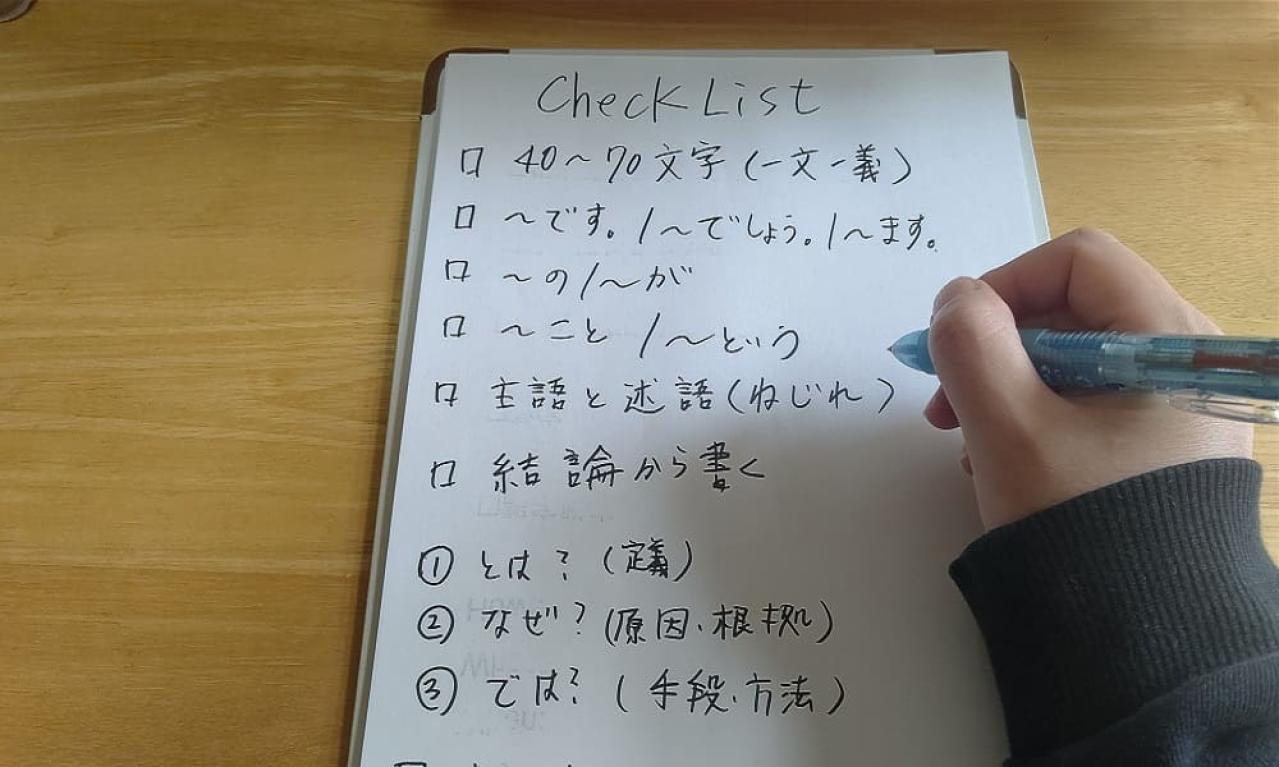 Check List
□ 40〜70文字(一文一義)
□ 〜です。/〜でしょう。/〜ます。
□ 〜の/〜が
□ 〜こと/〜という
□ 主語と述語(ねじれ)
□ 結論から書く
① とは?(定義)
② なぜ?(原因・根拠)
③ では?(手段・方法)